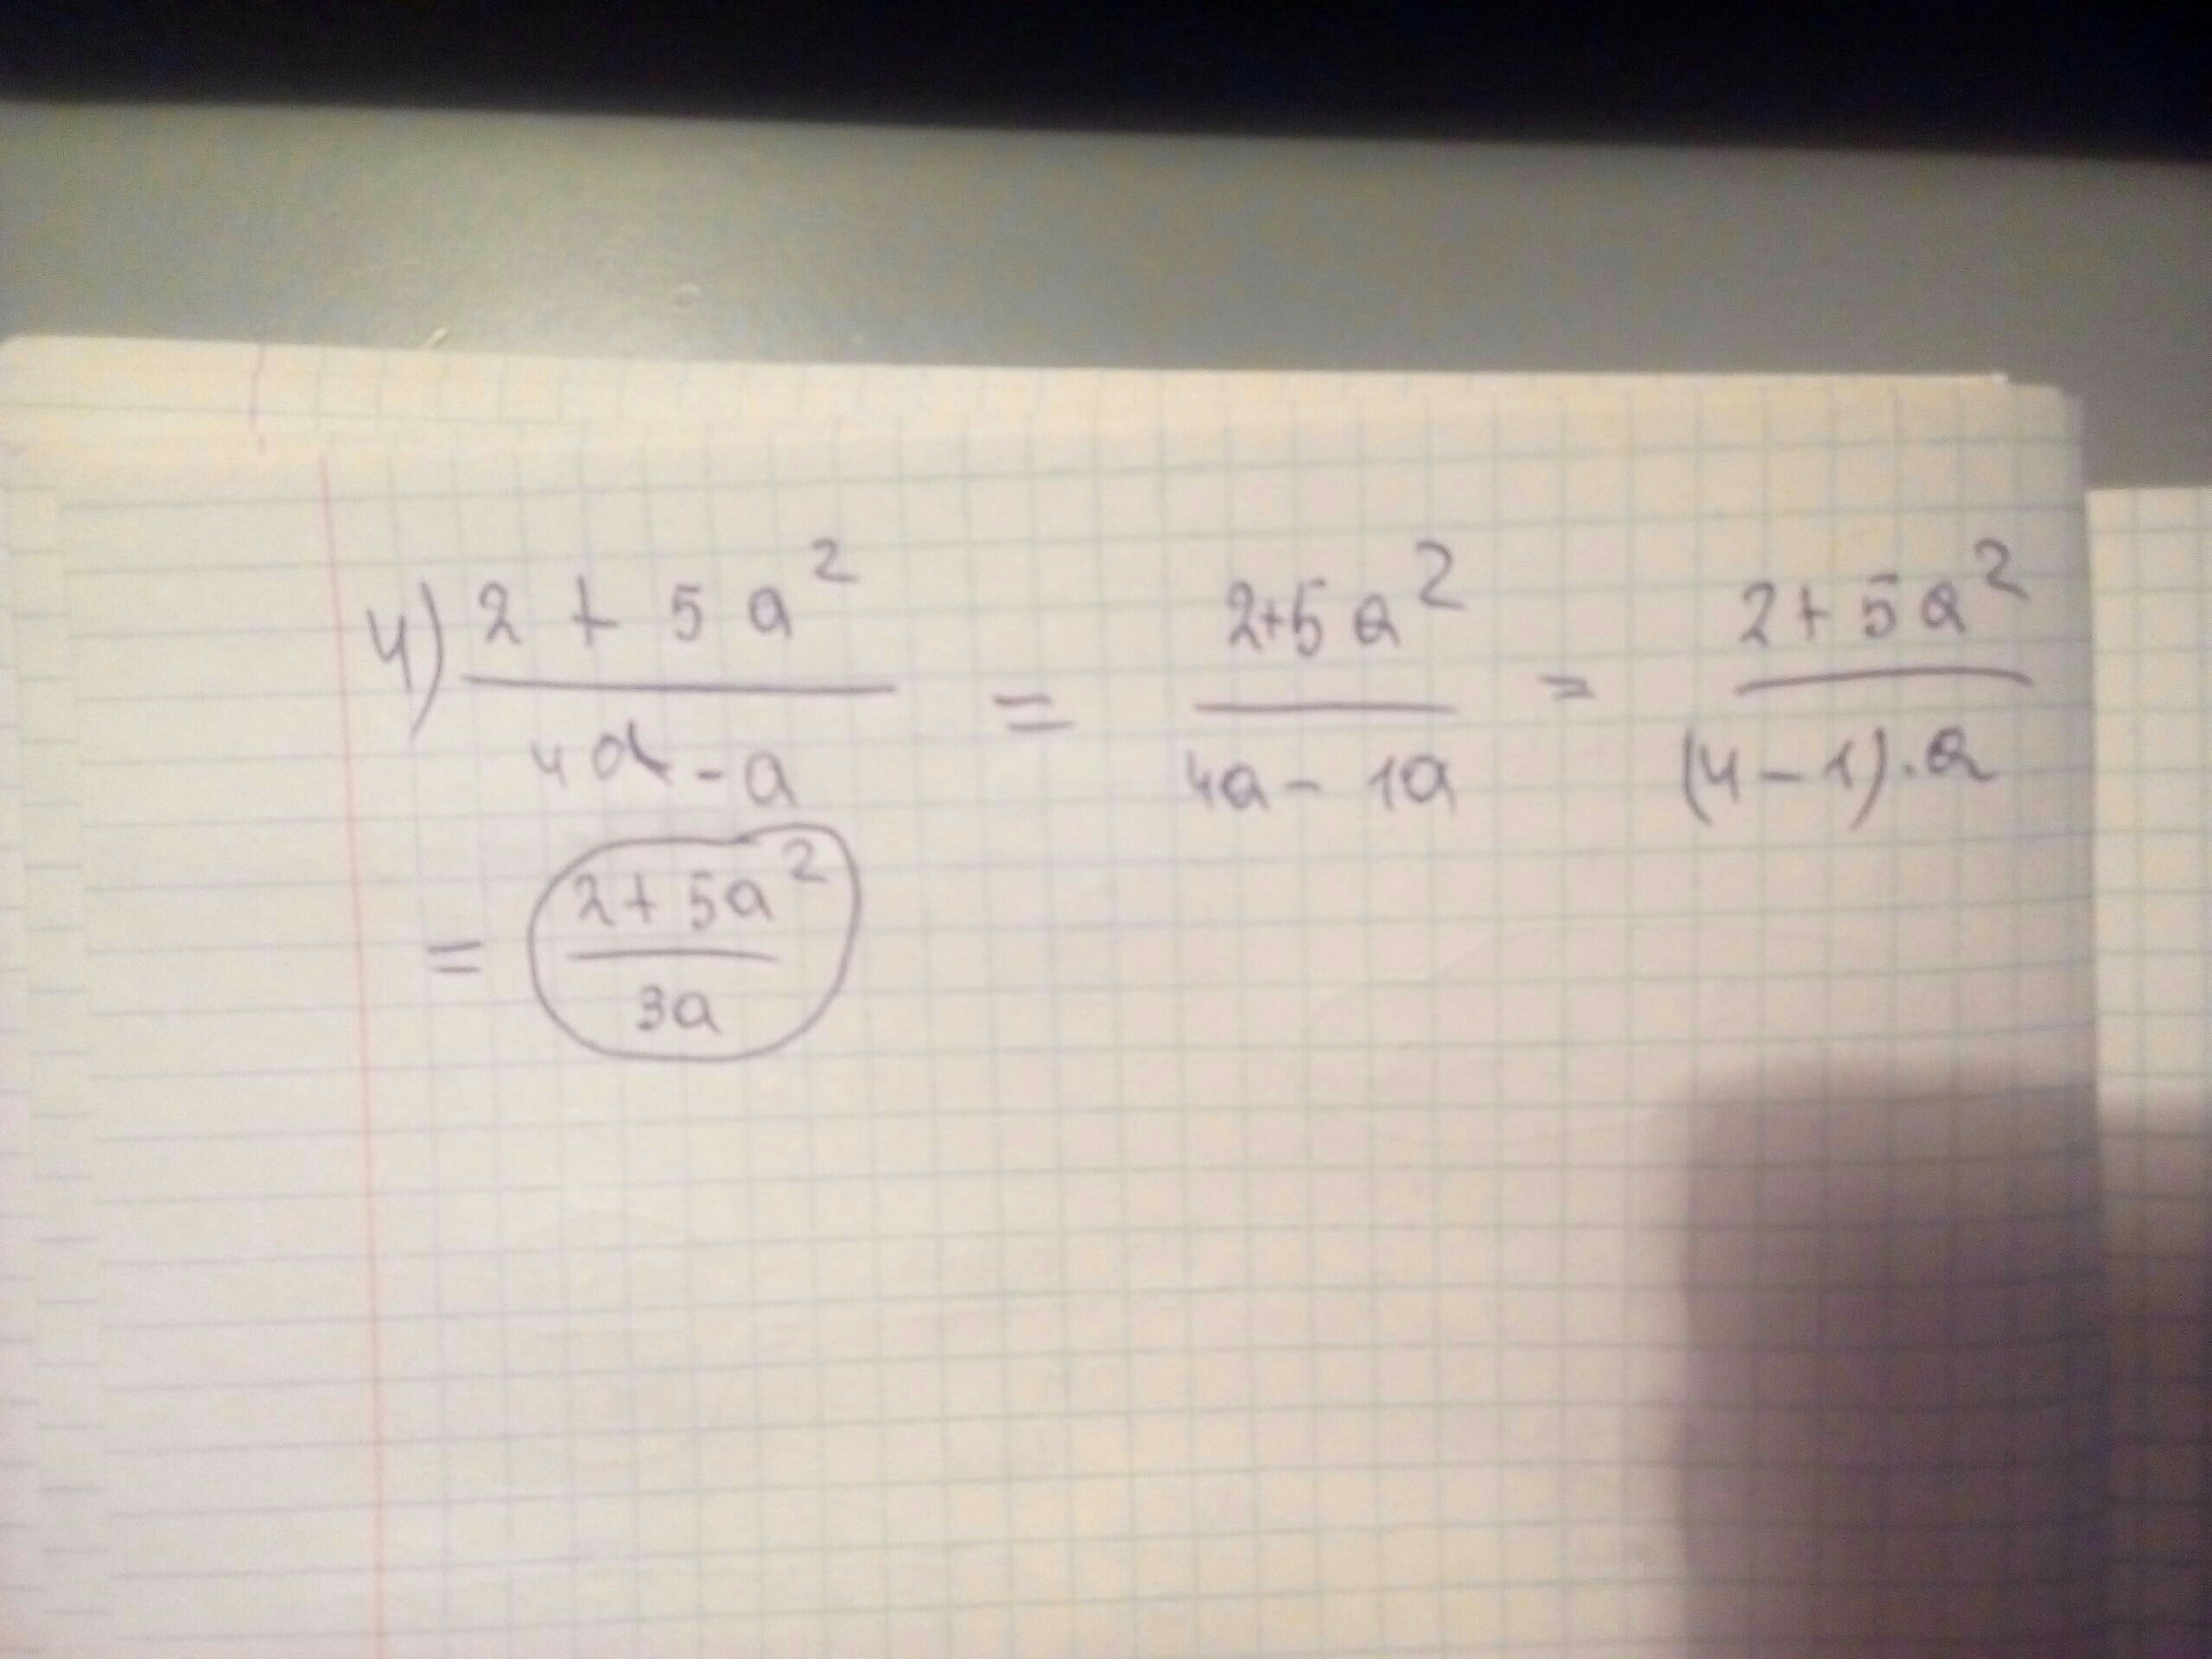 4) (2 + 5a²)/(4a - a) = (2+5a²)/(4a - 1a) = (2+5a²)/((4-1)·a)
= (2+5a²)/(3a)